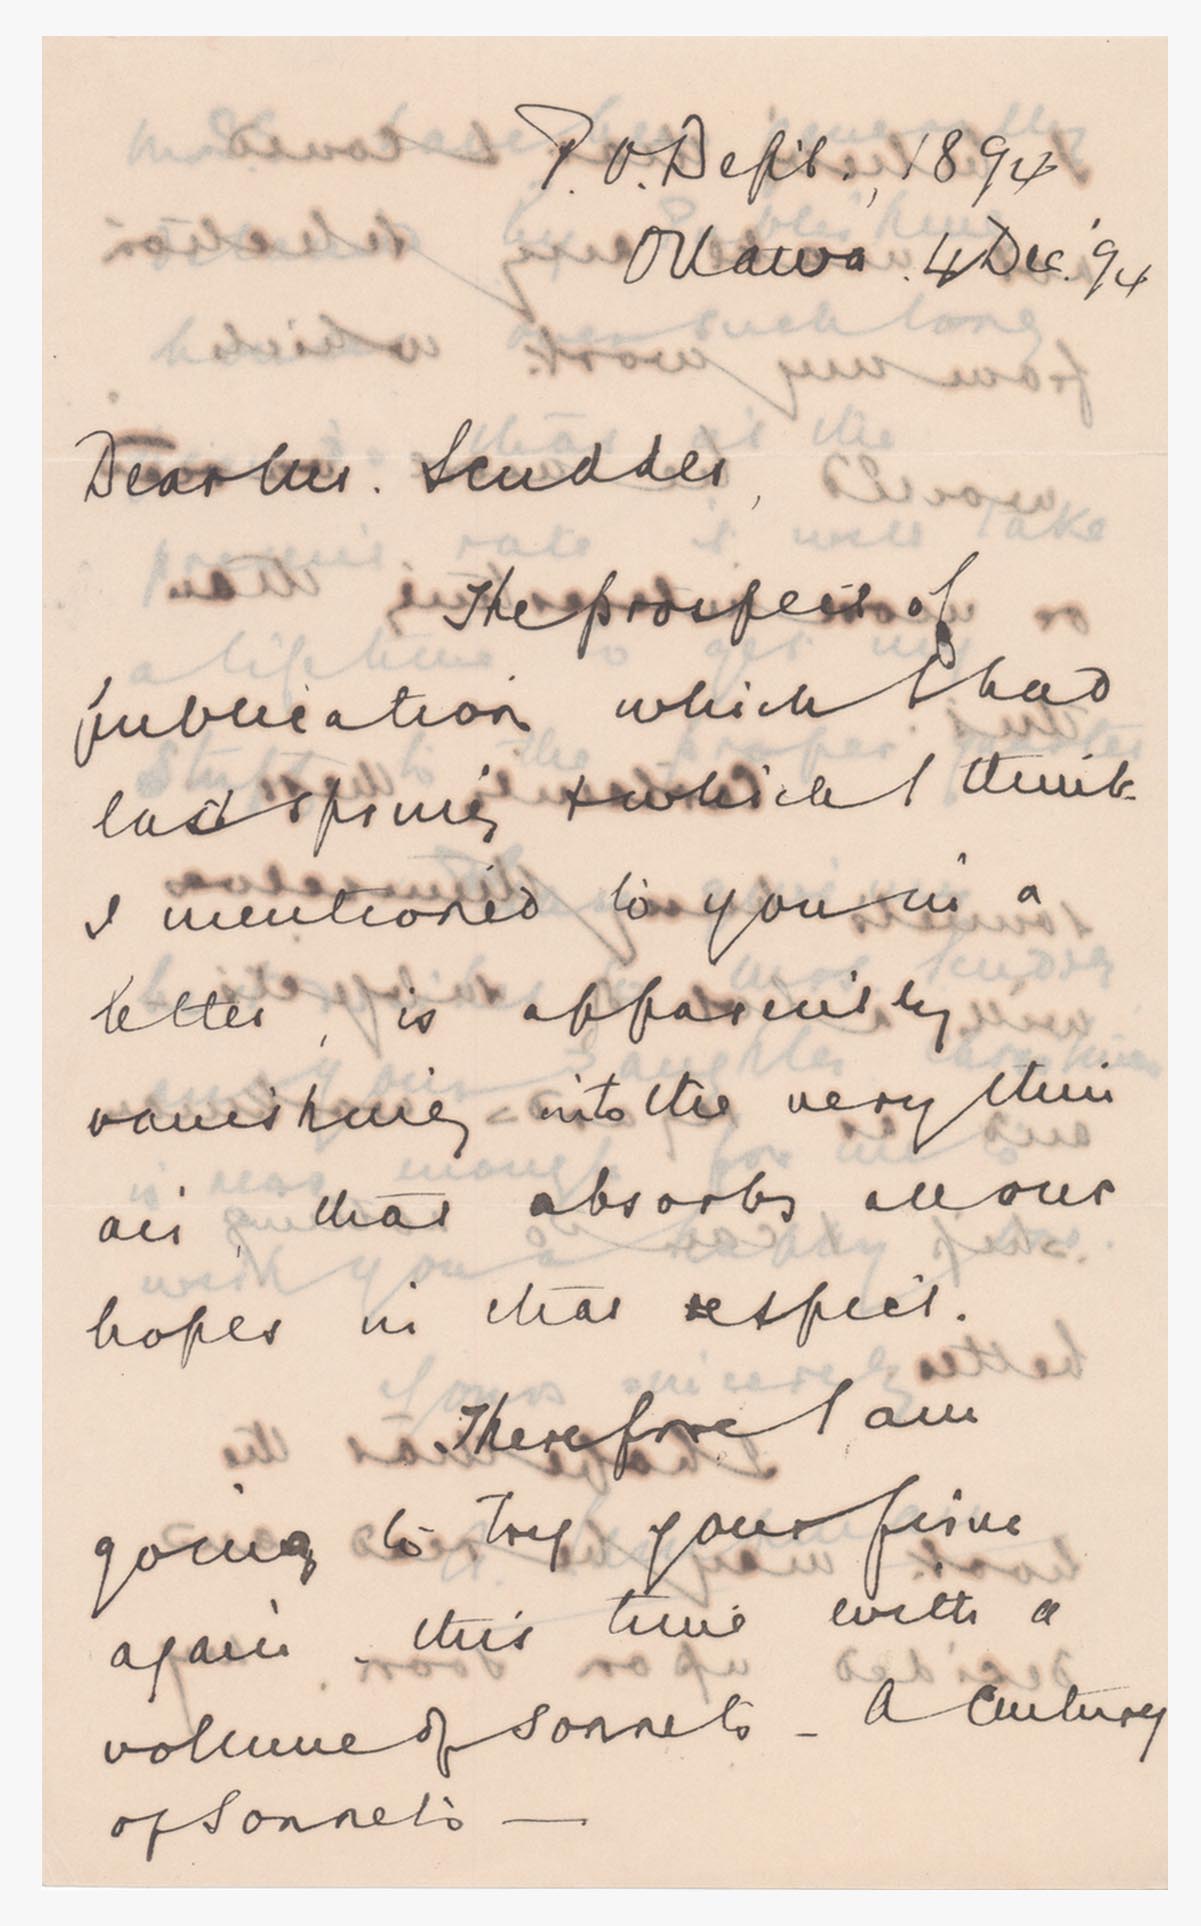 P. O. Dept., 1894
Ottawa. 4 Dec. '94
Dear Mr. Scudder,
The prospect of
publication which I had
last spring & which I think
I mentioned to you in a
letter, is apparently
vanishing into the very thin
air, that absorbs all our
hopes in that respect.
Therefore I am
going to try your firm
again, this time with a
volume of sonnets - A Century
of Sonnets —